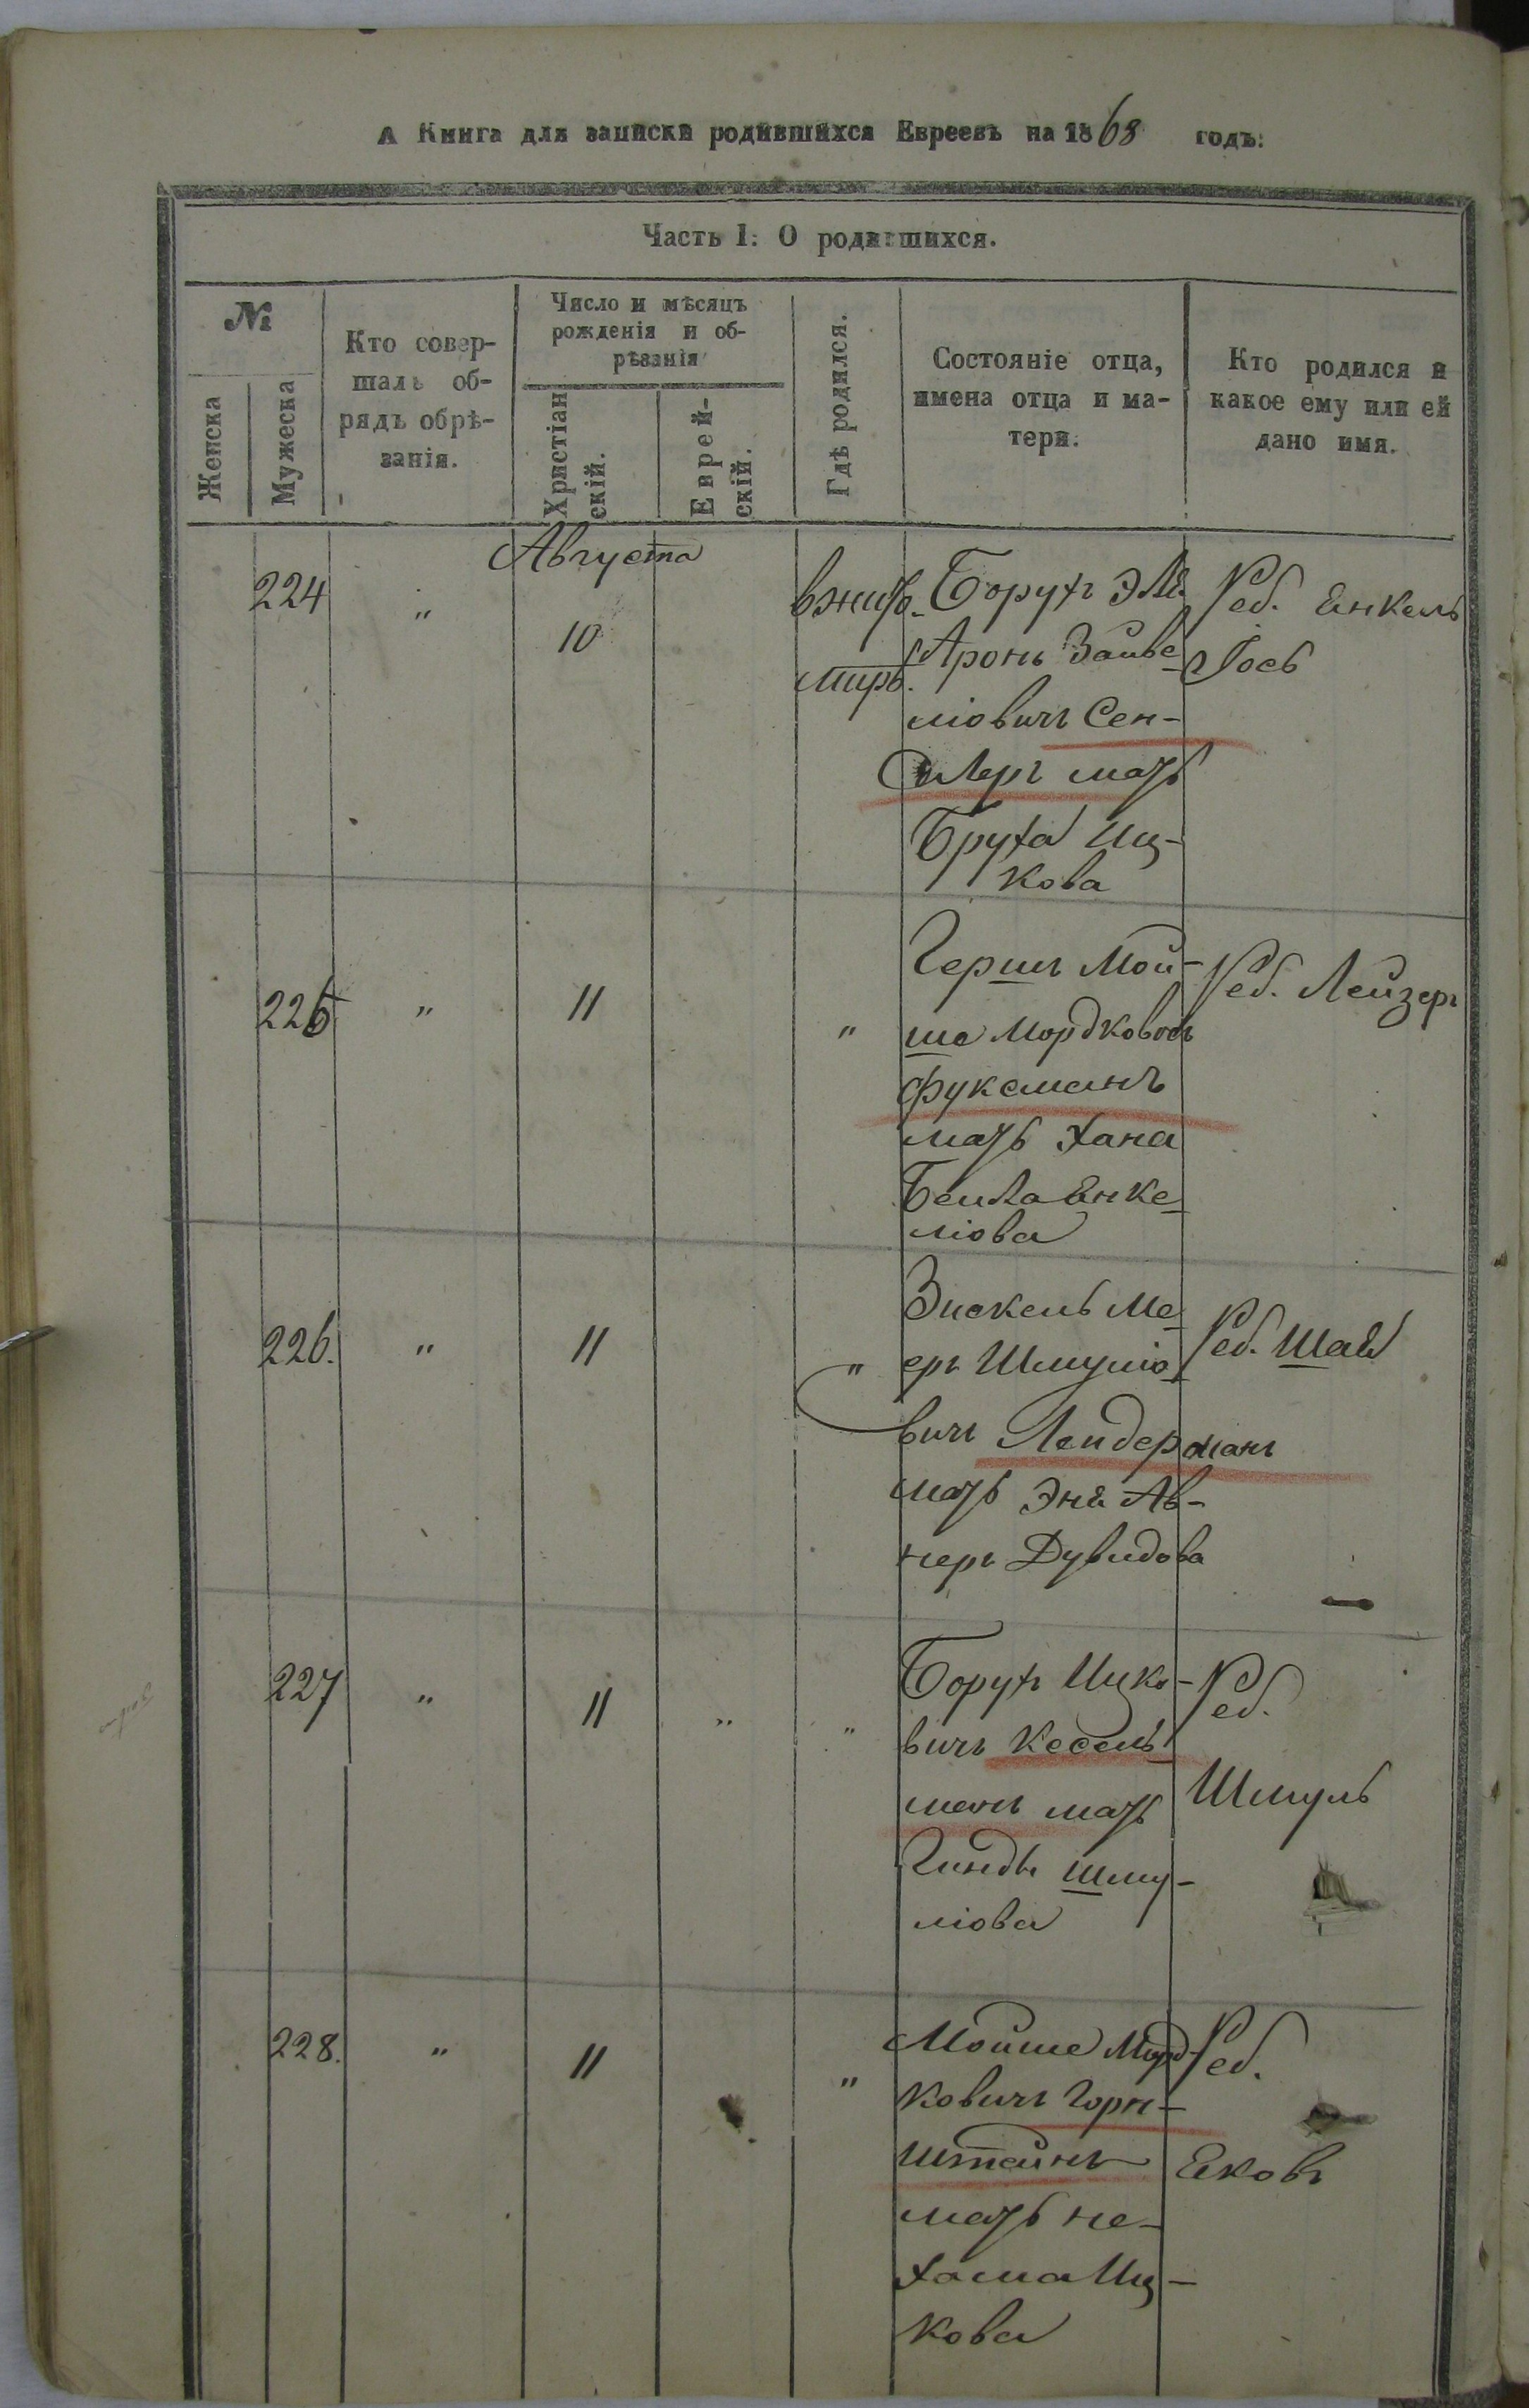 А Книга для записки родившихся Евреевъ на 1868 годъ:
Часть I: О родившихся.
№
Женска
Мужеска
Кто совер-
шалъ об-
рядъ обрѣ-
занія.
Число и мѣсяцъ
рожденія и об-
рѣзанія
Христіан
скій.
Еврей-
скій.
Гдѣ родился.
Состояніе отца,
имена отца и ма-
тери.
Кто родился и
какое ему или ей
дано имя.
Августа
224 " 10
вжит-
мирѣ.
Борухъ Эля
Аронъ Зайве
ліовичъ Сен-
длеръ мать
Бруха Иц-
кова
Реб. Енкель
Іось
225 " 11 "
Гершъ Мой-
ше Мордковъ
Фуксманъ
мать Хана
Бейла Енке
ліова
Реб. Лейзеръ
226. " 11 "
Зискель Ме
еръ Шмуліо
вичъ Лендерманъ
мать Эня Ав-
неръ Дувидова
Реб. Шая
227 " 11 " "
Борухъ Ицко-
вичъ Кесель
манъ мать
Гинда Шму-
ліова
Реб.
Шмуль
228. " 11 "
Мойше Морд-
ковичъ Горн-
штейнъ
мать Не-
хама Иц-
кова
Реб.
Ековъ